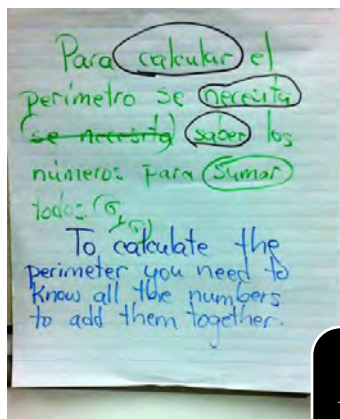 Para calcular el
perímetro se necesita
(se necesita) saber los
números para sumar
todos
To calculate the
perimeter you need to
know all the numbers
to add them together.